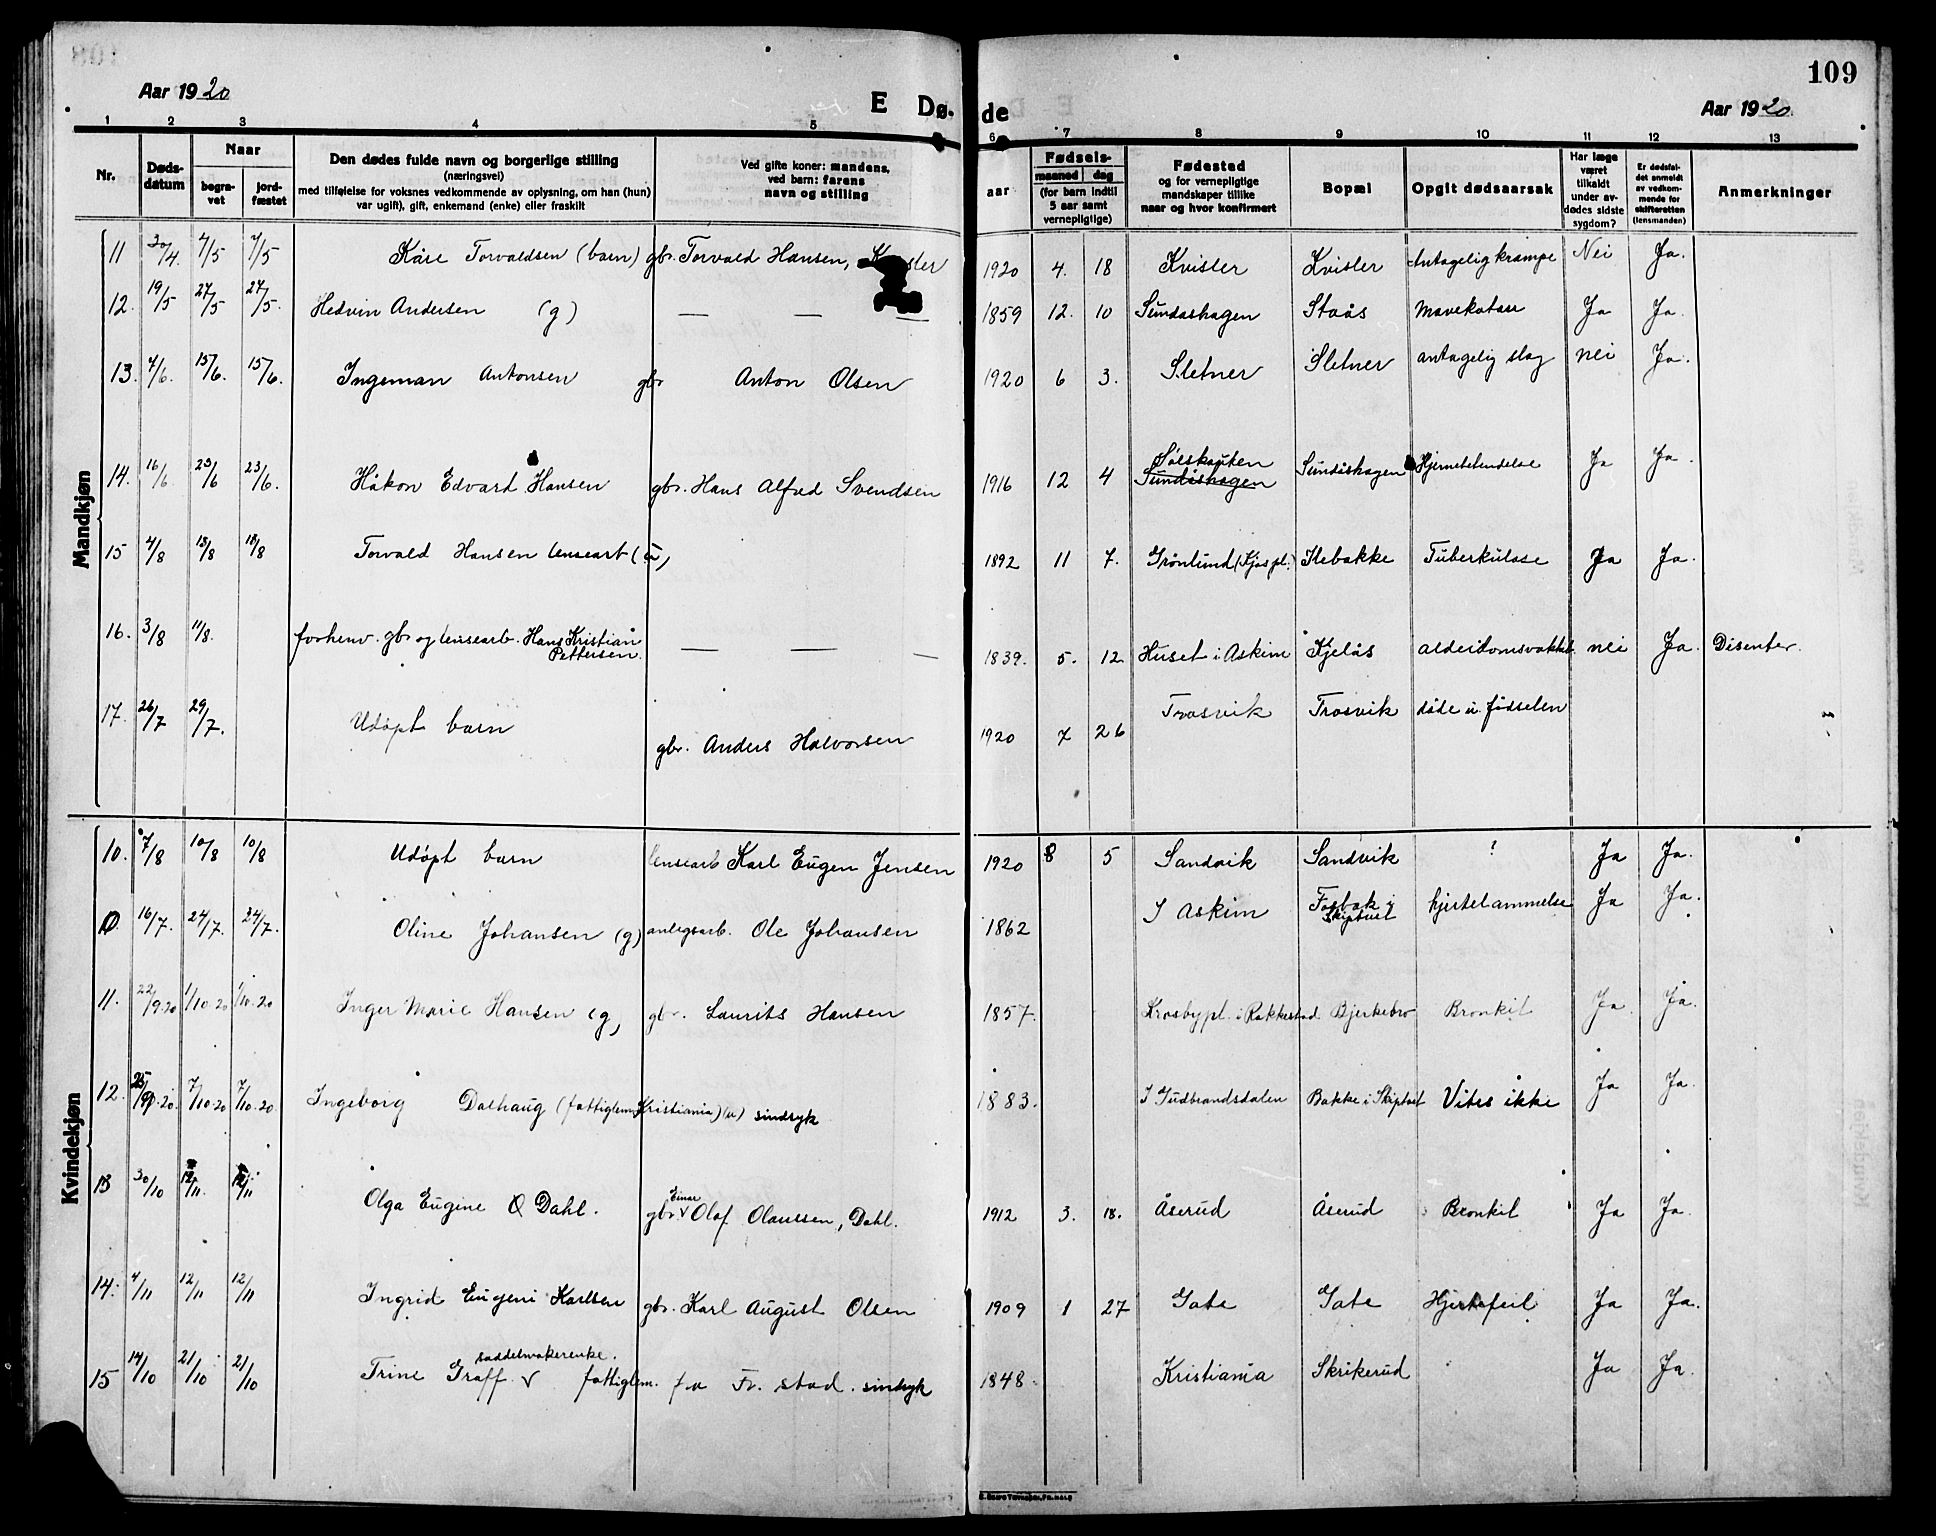 Aar 1920
E Dø.
de
Aar 1920.
109
1 2 3 4 5 6 7 8 9 10 11 12 13
Nr. Døds-datum Naar begra-vet jord-fæstet Den dødes fulde navn og borgerlige stilling (næringsvei) med tilføielse for voksnes vedkommende av oplysning, om han (hun) var ugift), gift, enkemand (enke) eller fraskilt Ved gifte koner: mandens, ved barn: farens navn og stilling aar Fødsels- maaned dag (for barn indtil 5 aar samt vernepligtige) Fødested og for vernepligtige mandskaper tillike naar og hvor konfirmert Bopæl Opgit dødsaarsak Har læge været tilkaldt under av-dødes sidste sygdom? Er dødsfal-det anmeldt av vedkom-mende for skifteretten (lensmanden) Anmerkninger
Mandkjøn
11 30/4. 7/5 7/5 Kåre Torvaldsen (barn) gbr. Torvald Hansen, 1920 4. 18 Kvisler Kvisler Antagelig krampe Nei Ja.
12. 19/5 27/5 27/5. Hedvin Andersen (g) — — — 1859 12. 10 Sundåshagen Staås Mavekatarr Ja Ja.
13. 4/6. 15/6. 15/6. Ingeman Antonsen gbr Anton Olsen 1920 6 3. Sletner Sletner antagelig slag nei Ja.
14. 16/6. 23/6 23/6. Håkon Edvard Hansen gbr. Hans Alfred Svendsen 1916 12 4 Sølskauten Sundåshagen Sundåshagen Hjernebetendelse Ja Ja.
15 4/8 13/8 18/8 Torvald Hansen lensearb (u) 1892 11 7. Grönlund (Kjos pl.) Ilebakke Tuberkulose Ja Ja.
16. 3/8 11/8. forhenv. gbr og lensearb. Hans Kristian
Pettersen. — — — 1839. 5. 12 Huset i Askim Kjelås alderdomsvakkel. nei Ja. Disenter.
17. 26/7 29/7. Udöpt barn gbr. Anders Halvorsen 1920 7 26 Trosvik Trosvik döde u. födselen
Kvindekjøn
10. 7/8 10/8 10/8 Udöpt barn lensearb Karl Eugen Jensen 1920 8 5 Sandvik Sandvik ? Ja Ja.
10. 16/7. 24/7. 24/7. Oline Johansen (g) anlegsarb. Ole Johansen 1862 I Askim Fosbæk i
Skiptvet hjertelammelse Ja Ja.
11. 22/9.20 1/10.20 1/10.20 Inger Marie Hansen (g) gbr. Laurits Hansen 1857. Krosbypl. i Rakkestad Bjerkebro Bronkit Ja Ja.
12. 25/9.20. 7/10.20 7/10.20. Ingeborg Dalhaug (fattiglem, Kristiania) (u) sindsyk 1883. I Gudbrandsdalen Bakke i Skiptvet Vites ikke Ja Ja.
13 30/10 12/11. 12/11 Olga Eugine Dahl. gbr. Einar Olaf Olaussen, Dahl. 1912 3. 18. Åserud Åserud Bronkit Ja Ja.
14. 4/11 12/11 12/11 Ingrid Eugeni Karlsen gbr. Karl August Olsen 1909 1 27 Gate Gate Hjertefeil Ja Ja.
15 14/10 21/10 21/10 Trine Graff saddelmakerenke. fattiglem. fra Fr. stad. sindsyk 1848. Kristiania Skrikerud Ja Ja.